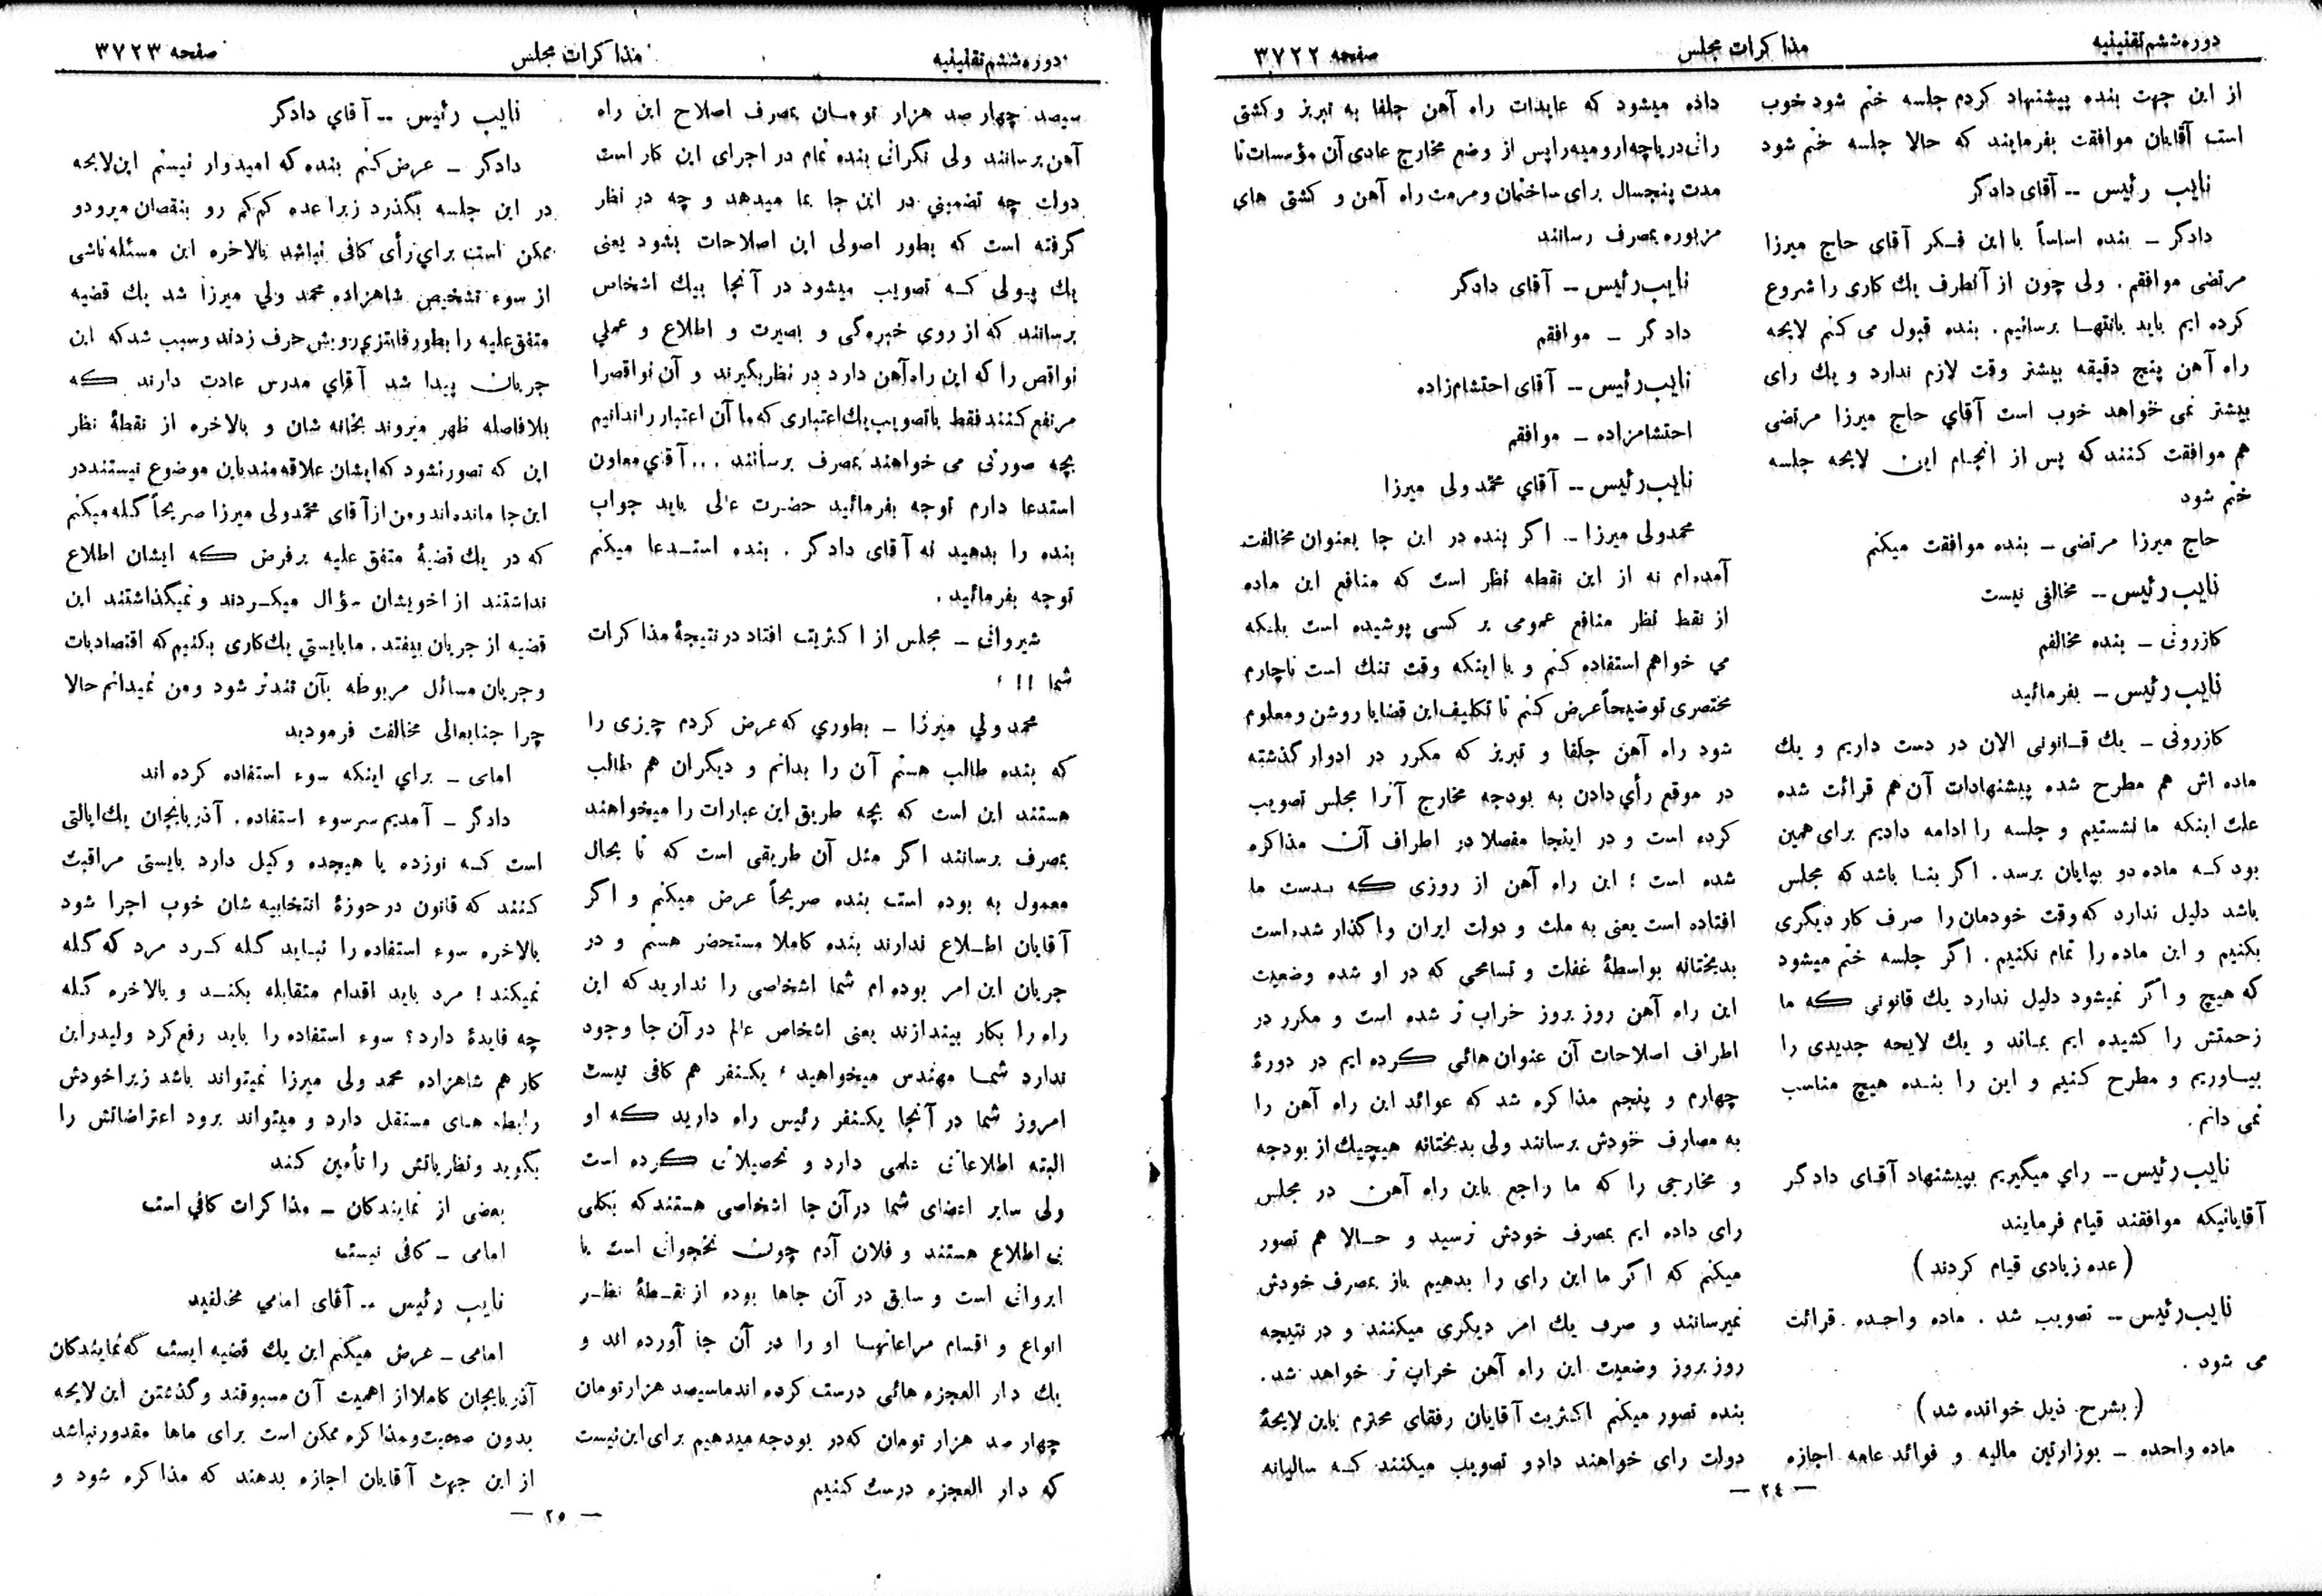 دوره ششم تقنینیه
مذاکرات مجلس
صفحه ۳۷۲۲
از این جهت بنده پیشنهاد کردم جلسه ختم شود خوب
است آقایان موافقت بفرمایند که حالا جلسه ختم شود
نایب رئیس -- آقای دادگر
دادگر - بنده اساساً با این فکر آقای حاج میرزا
مرتضی موافقم . ولی چون از آنطرف یك کاری را شروع
کرده ایم باید بانتها برسانیم . بنده قبول می کنم لایحه
راه آهن پنج دقیقه بیشتر وقت لازم ندارد و یك رای
بیشتر نمی خواهد خوب است آقای حاج میرزا مرتضی
هم موافقت کنند که پس از انجام این لایحه جلسه
ختم شود
حاج میرزا مرتضی - بنده موافقت میکنم
نایب رئیس -- مخالفی نیست
کازرونی - بنده مخالفم
نایب رئیس - بفرمائید
کازرونی - یك قانونی الان در دست داریم و یك
ماده اش هم مطرح شده پیشنهادات آن هم قرائت شده
علت اینکه ما نشستیم و جلسه را ادامه دادیم برای همین
بود که ماده دو بپایان برسد . اگر بنا باشد که مجلس
باشد دلیل ندارد که وقت خودمان را صرف کار دیگری
بکنیم و این ماده را تمام نکنیم . اگر جلسه ختم میشود
که هیچ و اگر نمیشود دلیل ندارد یك قانونی که ما
زحمتش را کشیده ایم بماند و یك لایحه جدیدی را
بیاوریم و مطرح کنیم و این را بنده هیچ مناسب
نمی دانم .
نایب رئیس -- رای میگیریم بپیشنهاد آقای دادگر
آقایانیکه موافقند قیام فرمایند
( عده زیادی قیام کردند )
نایب رئیس -- تصویب شد . ماده واحده قرائت
می شود .
( بشرح ذیل خوانده شد )
ماده واحده - بوزارتین مالیه و فوائد عامه اجازه
داده میشود که عایدات راه آهن جلفا به تبریز و کشتی
رانی دریاچه ارومیه را پس از وضع مخارج عادی آن مؤسسات تا
مدت پنجسال برای ساختمان و مرمت راه آهن و کشتی های
مزبوره بمصرف رسانند
نایب رئیس -- آقای دادگر
دادگر - موافقم
نایب رئیس -- آقای احتشام زاده
احتشامزاده - موافقم
نایب رئیس -- آقای محمد ولی میرزا
محمدولی میرزا - اگر بنده در این جا بعنوان مخالفت
آمده ام نه از این نقطه نظر است که منافع این ماده
از نقط نظر منافع عمومی بر کسی پوشیده است بلکه
می خواهم استفاده کنم و با اینکه وقت تنك است ناچارم
مختصری توضیحاً عرض کنم تا تکلیف این قضایا روشن و معلوم
شود راه آهن جلفا و تبریز که مکرر در ادوار گذشته
در موقع رأی دادن به بودجه مخارج آنرا مجلس تصویب
کرده است و در اینجا مفصلا در اطراف آن مذاکره
شده است ؛ این راه آهن از روزی که بدست ما
افتاده است یعنی به ملت و دولت ایران واگذار شده است
بدبختانه بواسطهٔ غفلت و تسامحی که در او شده وضعیت
این راه آهن روز بروز خراب تر شده است و مکرر در
اطراف اصلاحات آن عنوان هائی کرده ایم در دورهٔ
چهارم و پنجم مذاکره شد که عوائد این راه آهن را
به مصارف خودش برسانند ولی بدبختانه هیچیك از بودجه
و مخارجی را که ما راجع باین راه آهن در مجلس
رای داده ایم بمصرف خودش نرسید و حالا هم تصور
میکنم که اگر ما این رای را بدهیم باز بمصرف خودش
نمیرسانند و صرف یك امر دیگری میکنند و در نتیجه
روز بروز وضعیت این راه آهن خراب تر خواهد شد .
بنده تصور میکنم اکثریت آقایان رفقای محترم باین لایحهٔ
دولت رای خواهند داد و تصویب میکنند که سالیانه
- ۲٤ -
دوره ششم تقنینیه
مذاکرات مجلس
صفحه ۳۷۲۳
سیصد چهار صد هزار تومان بمصرف اصلاح این راه
آهن برسانند ولی نگرانی بنده تمام در اجرای این کار است
دولت چه تضمینی در این جا بما میدهد و چه در نظر
گرفته است که بطور اصولی این اصلاحات بشود یعنی
یك پولی که تصویب میشود در آنجا بیك اشخاص
برسانند که از روی خبره گی و بصیرت و اطلاع و عملی
نواقص را که این راه آهن دارد در نظر بگیرند و آن نواقص را
مرتفع کنند فقط با تصویب یك اعتباری که ما آن اعتبار را ندانیم
بچه صورتی می خواهند بمصرف برسانند ... آقای معاون
استدعا دارم توجه بفرمائید حضرت عالی باید جواب
بنده را بدهید نه آقای دادگر . بنده استدعا میکنم
توجه بفرمائید .
شیروانی - مجلس از اکثریت افتاد در نتیجهٔ مذاکرات
شما !!
محمد ولی میرزا - بطوری که عرض کردم چیزی را
که بنده طالب هستم آن را بدانم و دیگران هم طالب
هستند این است که بچه طریق این عبارات را میخواهند
بمصرف برسانند اگر مثل آن طریقی است که تا بحال
معمول به بوده است بنده صریحاً عرض میکنم و اگر
آقایان اطلاع ندارند بنده کاملا مستحضر هستم و در
جریان این امر بوده ام شما اشخاصی را ندارید که این
راه را بکار بیندازند یعنی اشخاص عالم در آن جا وجود
ندارد شما مهندس میخواهید ، یکنفر هم کافی نیست
امروز شما در آنجا یکنفر رئیس راه دارید که او
البته اطلاعاتی علمی دارد و تحصیلاتی کرده است
ولی سایر اعضای شما در آن جا اشخاصی هستند که بکلی
بی اطلاع هستند و فلان آدم چون نخجوانی است یا
ایروانی است و سابق در آن جاها بوده از نقطهٔ نظر
انواع و اقسام مراعاتها او را در آن جا آورده اند و
یك دار العجزه هائی درست کرده اند ما سیصد هزار تومان
چهار صد هزار تومان که در بودجه میدهیم برای این نیست
که دار العجزه درست کنیم
نایب رئیس -- آقای دادگر
دادگر - عرض کنم بنده که امیدوار نیستم این لایحه
در این جلسه بگذرد زیرا عده کم کم رو بنقصان میرود و
ممکن است برای رأی کافی نباشد بالاخره این مسئله ناشی
از سوء تشخیص شاهزاده محمد ولی میرزا شد یك قضیه
متفق علیه را بطور فانتزی رویش حرف زدند و سبب شد که این
جریان پیدا شد آقای مدرس عادت دارند که
بلافاصله ظهر میروند بخانه شان و بالاخره از نقطهٔ نظر
این که تصور نشود که ایشان علاقه مند باین موضوع نیستند در
این جا مانده اند و من از آقای محمدولی میرزا صریحاً گله میکنم
که در یك قضیهٔ متفق علیه بر فرض که ایشان اطلاع
نداشتند از اخویشان سؤال میکردند و نمیگذاشتند این
قضیه از جریان بیفتد . ما بایستی یك کاری بکنیم که اقتصادیات
و جریان مسائل مربوطه بآن تندتر شود و من نمیدانم حالا
چرا جنابعالی مخالفت فرمودید
امامی - برای اینکه سوء استفاده کرده اند
دادگر - آمدیم سر سوء استفاده . آذربایجان یك ایالتی
است که نوزده یا هیجده وکیل دارد بایستی مراقبت
کنند که قانون در حوزهٔ انتخابیه شان خوب اجرا شود
بالاخره سوء استفاده را نباید گله کرد مرد که گله
نمیکند ! مرد باید اقدام متقابله بکند و بالاخره گله
چه فایدهٔ دارد ؟ سوء استفاده را باید رفع کرد ولیدر این
کار هم شاهزاده محمد ولی میرزا نمیتواند باشد زیرا خودش
رابطه های مستقل دارد و میتواند برود اعتراضاتش را
بگوید و نظریاتش را تأمین کند
بعضی از نمایندگان - مذاکرات کافی است
امامی - کافی نیست
نایب رئیس -- آقای امامی مخالفید
امامی - عرض میکنم این یك قضیه ایست که نمایندگان
آذربایجان کاملا از اهمیت آن مسبوقند و گذشتن این لایحه
بدون صحبت و مذاکره ممکن است برای ماها مقدور نباشد
از این جهت آقایان اجازه بدهند که مذاکره شود و
- ۲٥ -